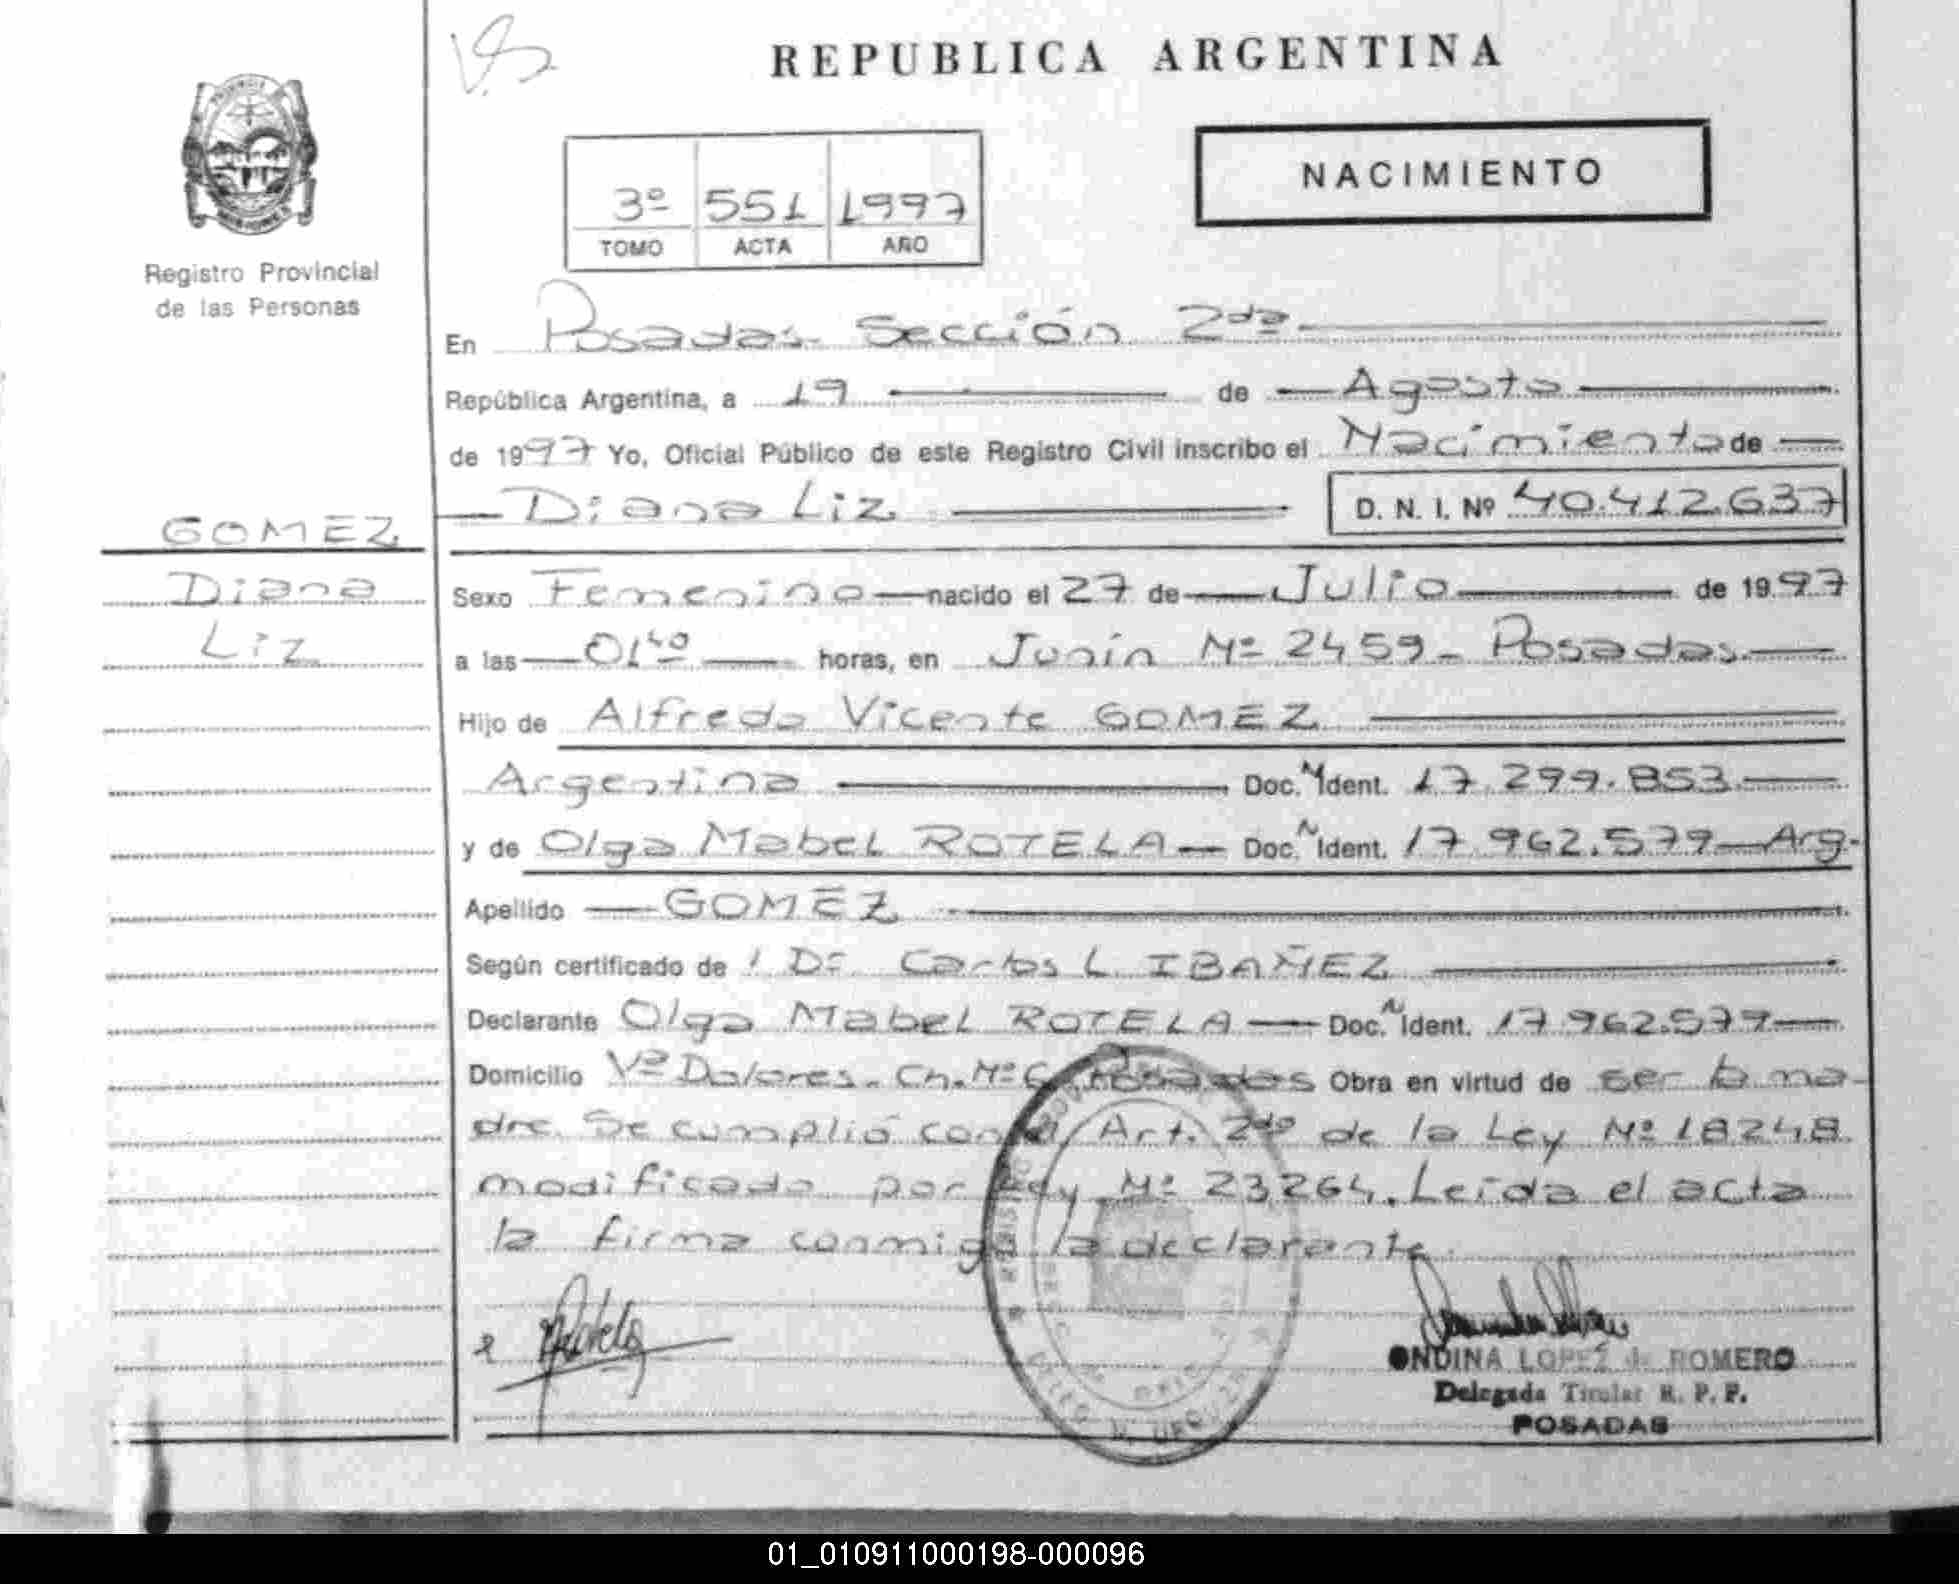 REPUBLICA ARGENTINA
NACIMIENTO
3º 551 1997
TOMO ACTA AÑO
Registro Provincial
de las Personas
En Posadas Sección 2da
República Argentina, a 19 de Agosto
de 1997 Yo, Oficial Público de este Registro Civil inscribo el Nacimiento de
Diana Liz D. N. I. Nº 40.412.637
GOMEZ
Diana
Liz
Sexo Femenino nacido el 27 de Julio de 1997
a las 01 40 horas, en Junín Nº 2459 - Posadas
Hijo de Alfredo Vicente GOMEZ
Argentina Doc. N Ident. 17.299.853
y de Olga Mabel ROTELA Doc. N Ident. 17.962.579 Arg.
Apellido GOMEZ
Según certificado de Dr. Carlos L. IBAÑEZ
Declarante Olga Mabel ROTELA Doc. N Ident. 17.962.579
Domicilio Vª Dolores. Ch. Nº Posadas Obra en virtud de ser la ma-
dre. Se cumplió con el Art. 2do de la Ley Nº 18248
modificado por Ley Nº 23.264. Leída el acta
la firma conmigo la declarante.
ONDINA LOPEZ de ROMERO
Delegada Titular R. P. P.
POSADAS
01_010911000198-000096